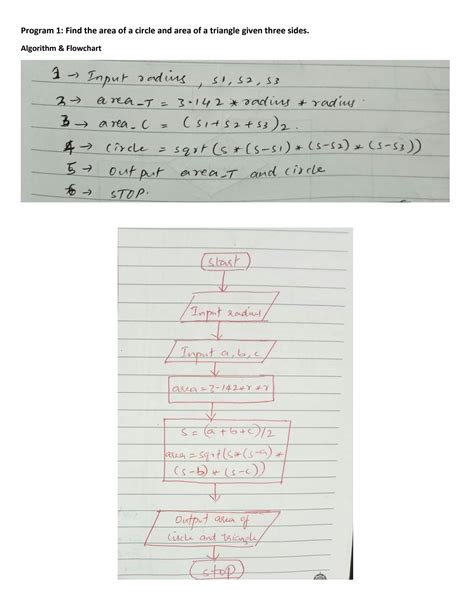 Program 1: Find the area of a circle and area of a triangle given three sides.
Algorithm & Flowchart
1 → Input radius, s1, s2, s3
2 → area_T = 3.142 * radius * radius.
3 → area_C = (s1+s2+s3)2.
4 → circle = sqrt (s * (s-s1) * (s-s2) * (s-s3))
5 → output area_T and circle
6 → STOP.
Start
Input radius
Input a, b, c
area=3.142*r*r
s = (a+b+c)/2
area=sqrt(s*(s-a)*
(s-b)*(s-c))
Output area of
circle and triangle
stop